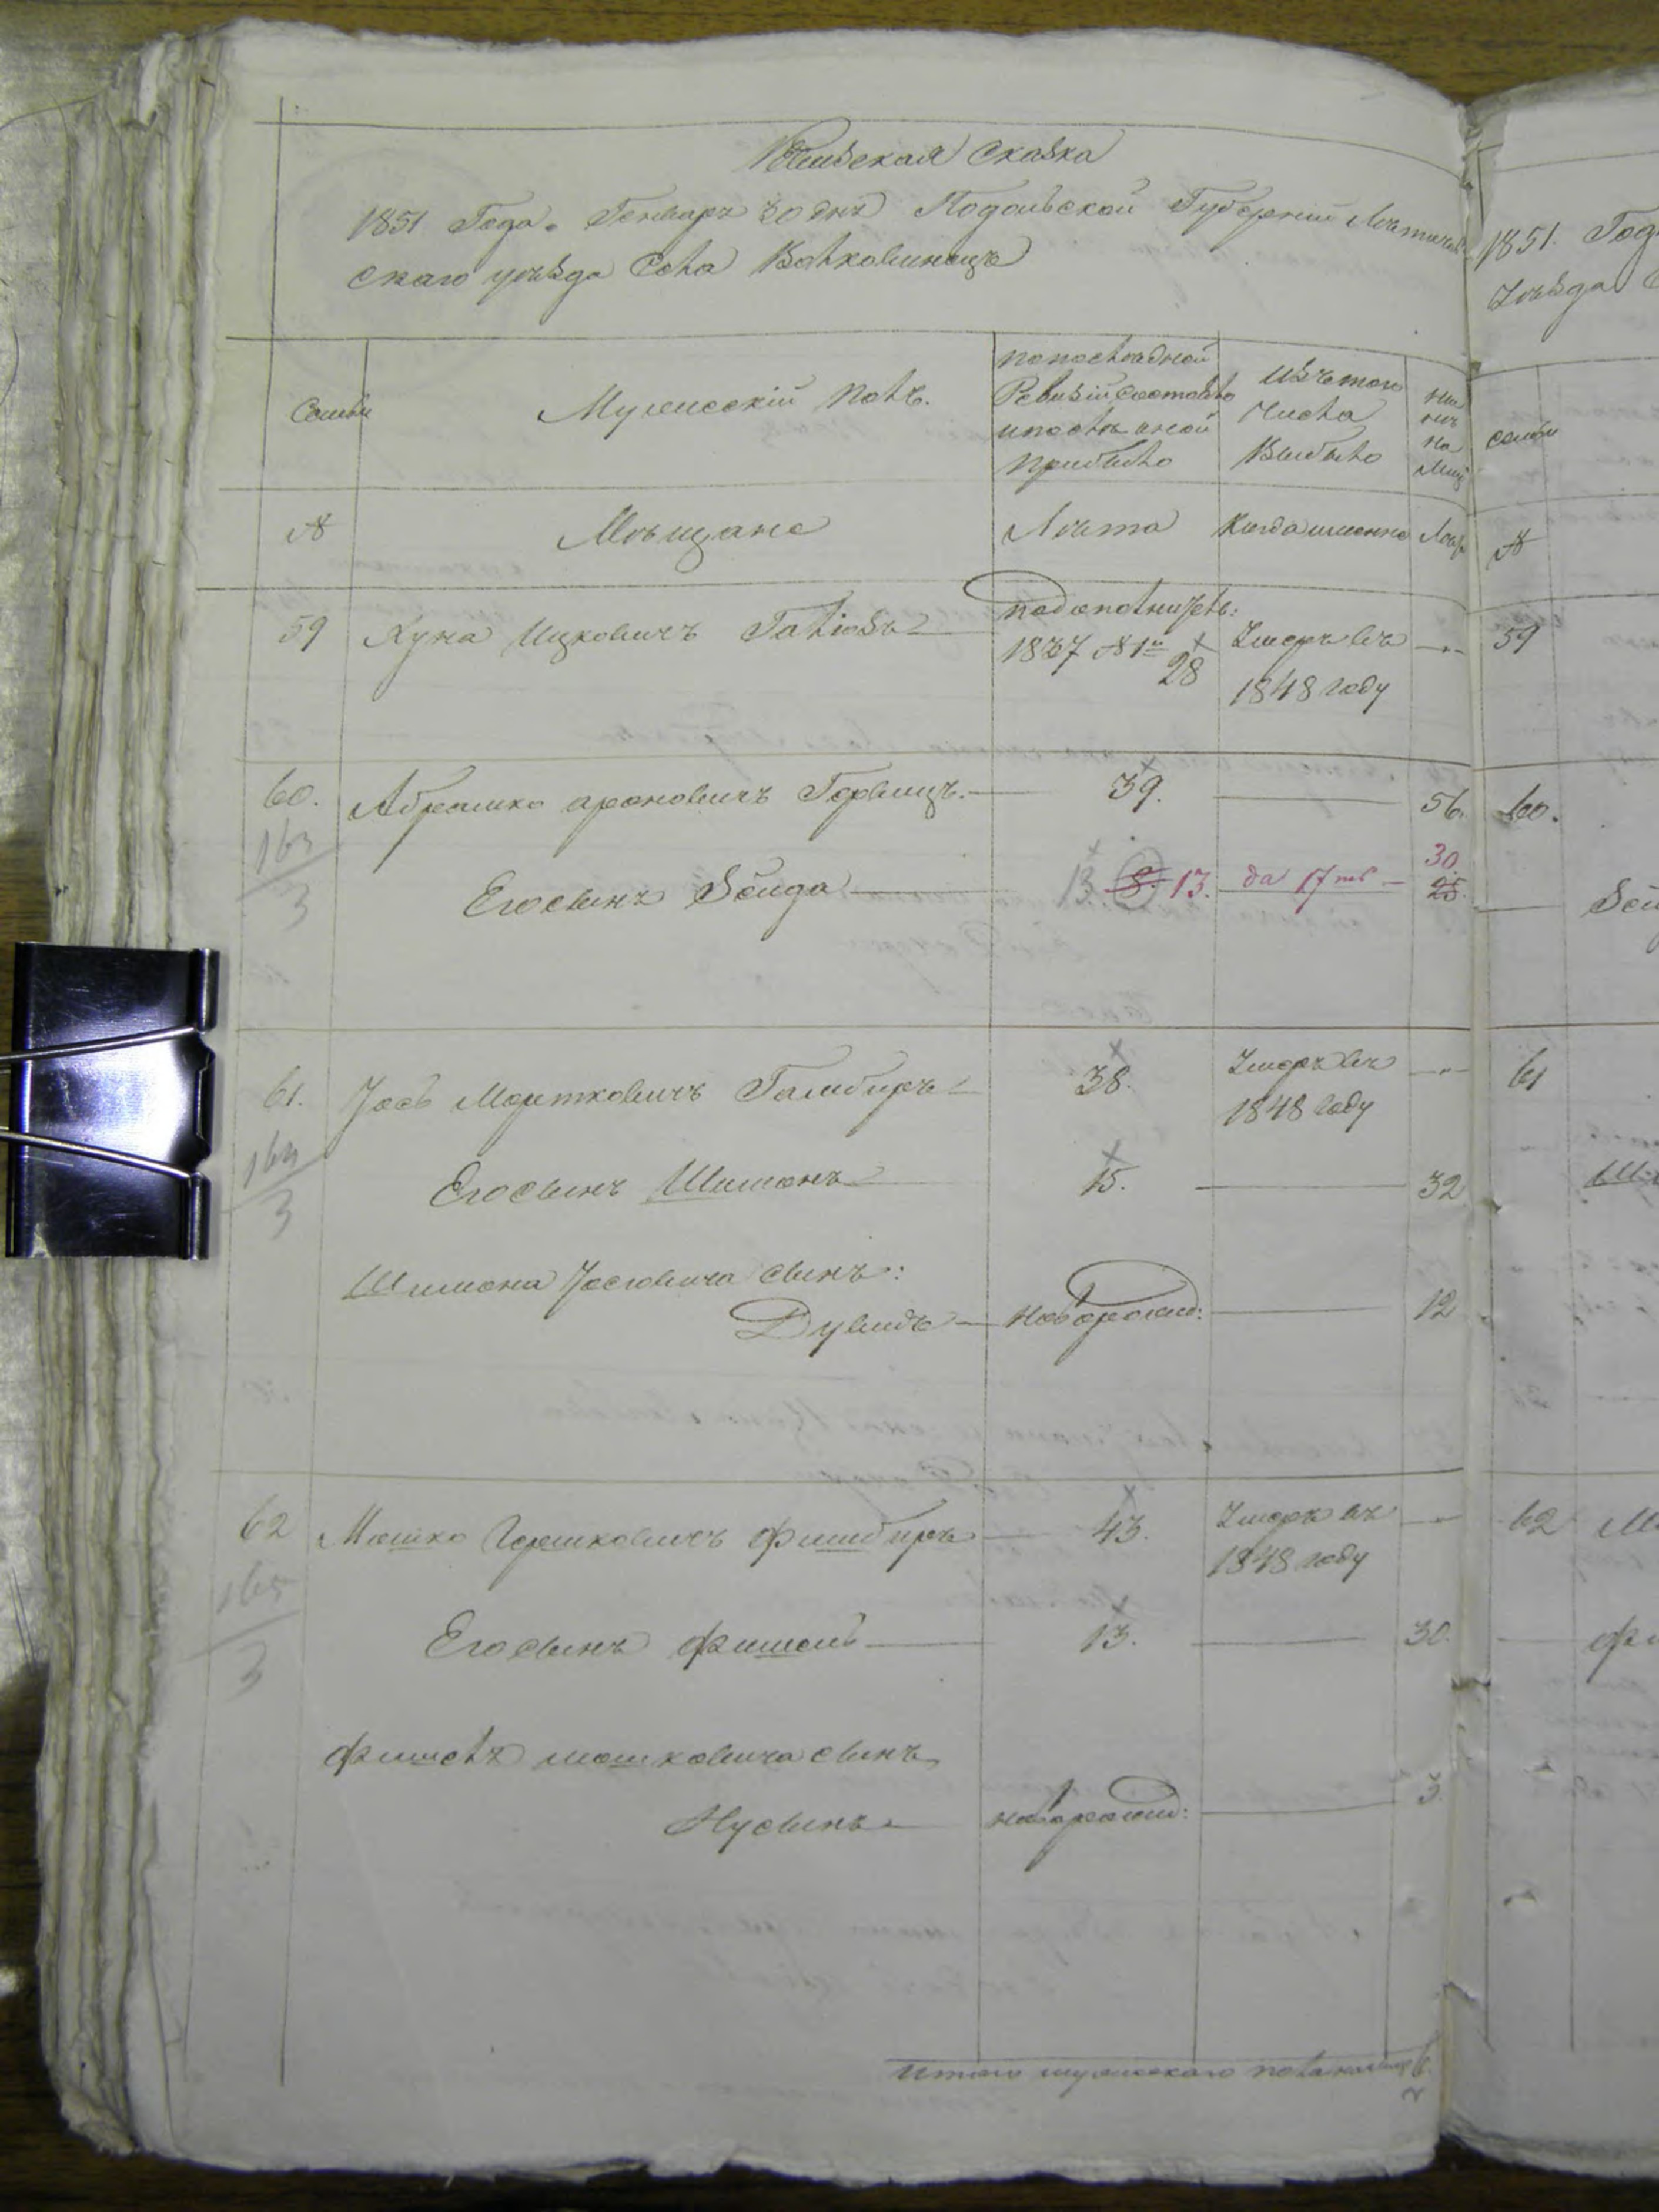 Ревизская Сказка
1851 Года. Генваря 30 дня Подольской Губернии Летичев
скаго уѣзда Села Волковинецъ
Семьи
Мужескій Полъ.
По послѣдной
Ревизіи состояло
и послѣ оной
прибыло
Изъ того
Числа
Выбыло
Ны
нѣ
на
Лицо
№
Мѣщане
Лѣта
Когда именно
Лѣта
59 Хуна Ицковичъ
по дополнител:
1837 № 1м 28
Умеръ въ
1848 году
60. Абрамко Ароновичъ Горвицъ. 39. 56.
163
3
Его сынъ Зейда 13. 8. 13. да 17 лѣ 30. 25.
61. Іось Мортковичъ Гамбиръ 38. Умеръ въ
1848 году
164
3
Его сынъ Шимонъ 15. 32
Шимона Іосіовича сынъ:
Дувидъ новорожд: 12
62 Мошко Гершковичъ Фишбиръ 43. Умеръ въ
1848 году
165
3
Его сынъ Фишель 13. 30.
Фишеля Мошковича сынъ
Нусынъ новорожд: 3.
Итого мужескаго пола налицо 6.
1851. Года
Уѣзда С
Семьи
№
59
60.
Зей
61
Ши
62 Мо
Фи